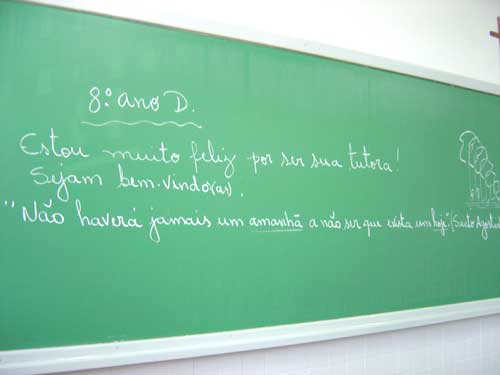 8º ano D.
Estou muito feliz por ser sua tutora!
Sejam bem-vindo(as).
"Não haverá jamais um amanhã a não ser que exista um hoje." (Santo Agostin